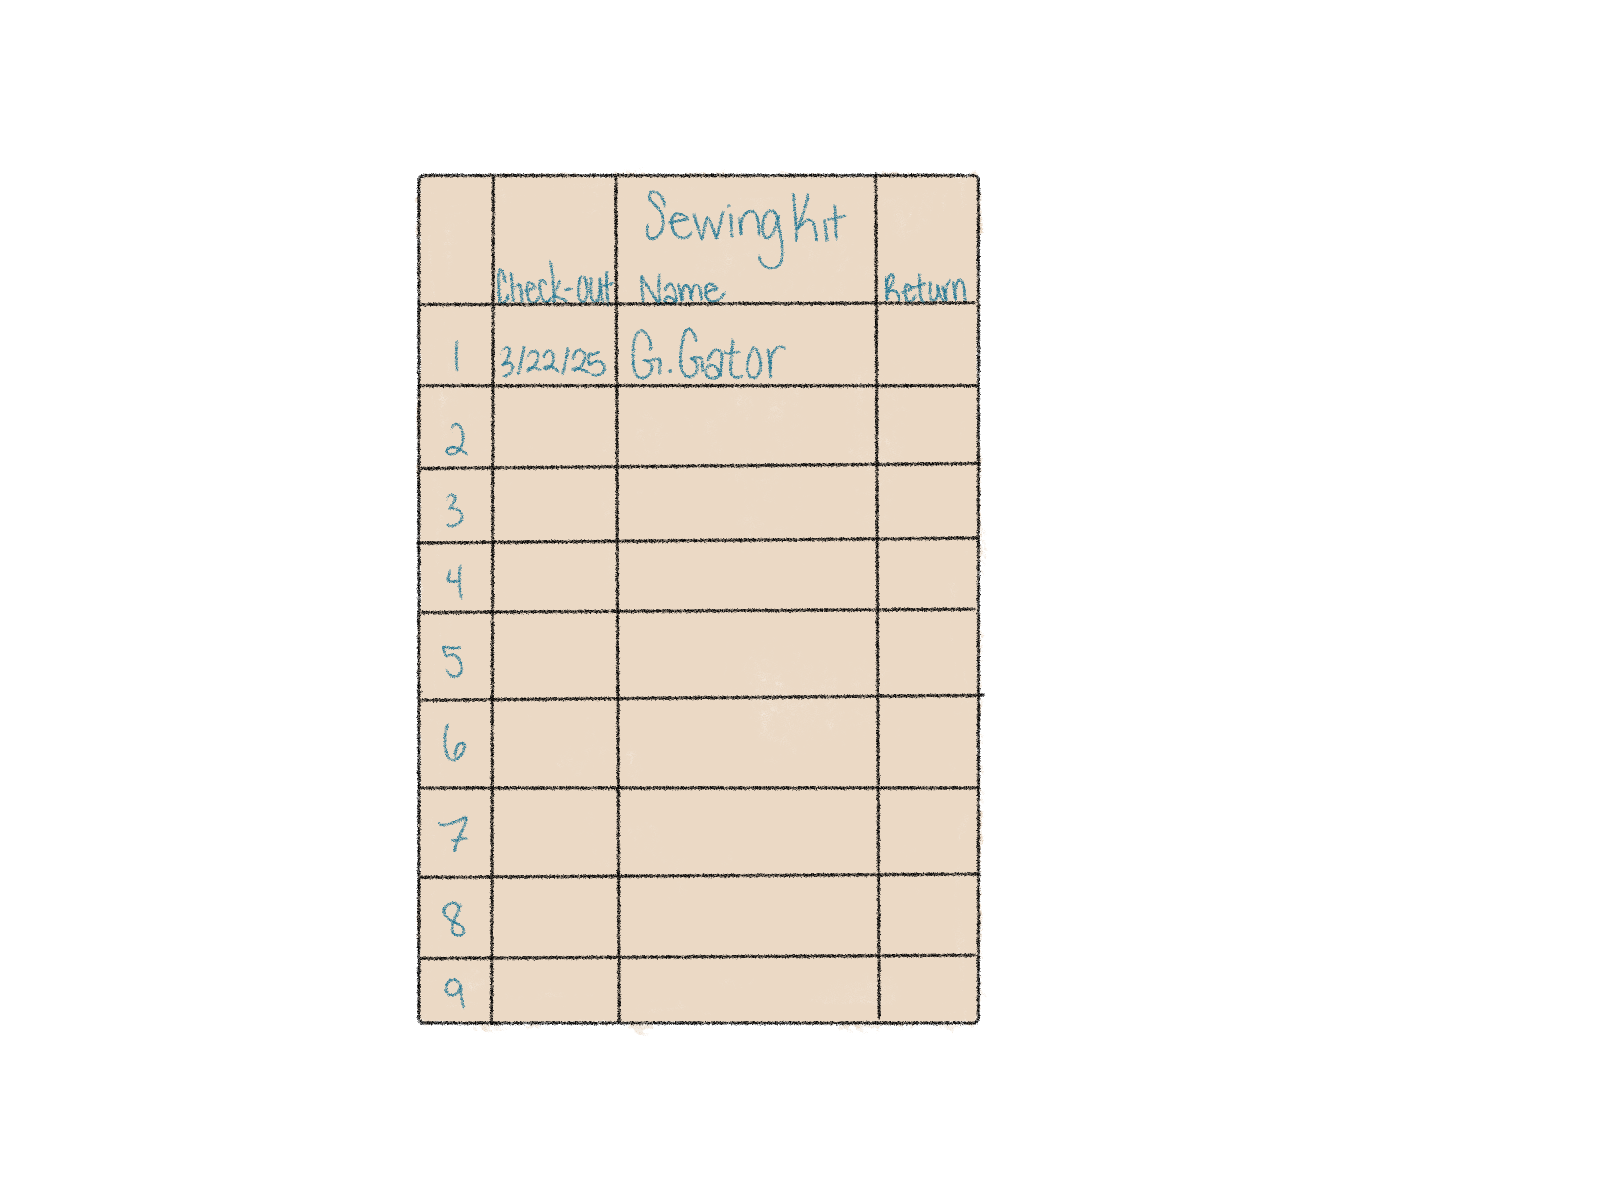 Sewing Kit
Check-out Name Return
1 3/22/25 G. Gator
2
3
4
5
6
7
8
9